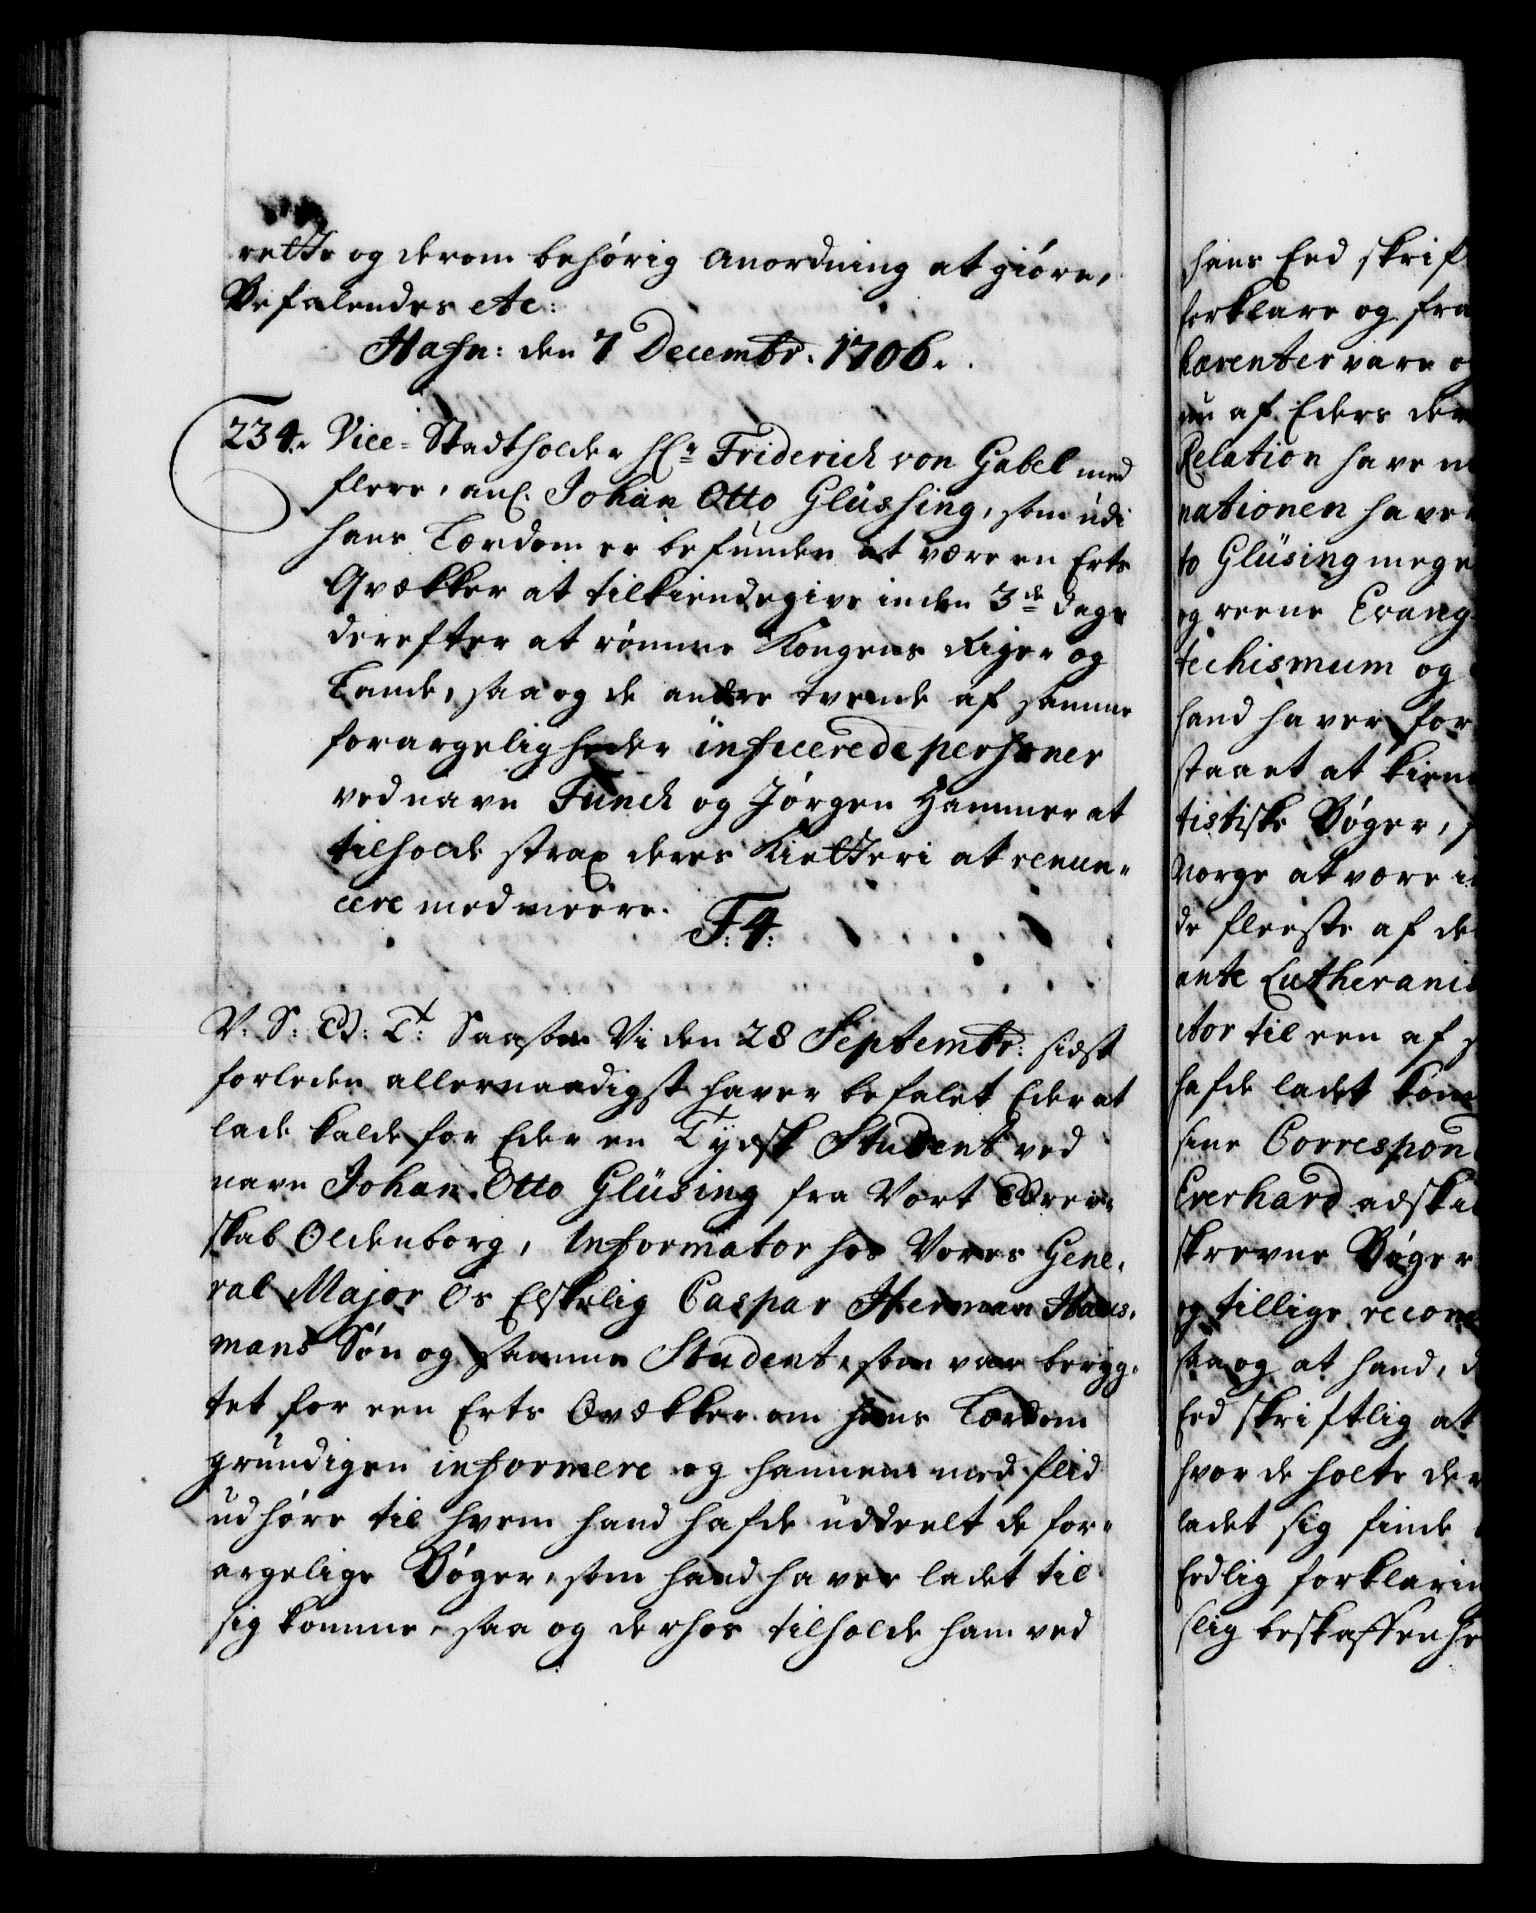 rette og derom behörig anordning at giöre,
Befalendes etc:
Hafn: den 7 Decembr. 1706.
234. Vice-Stadtholder Hr Friderich von Gabel med
flere, anl. Johan Otto Glüssing, som udi
hans Lærdom er befunden at være en Erts
Qvækker at tilkiendegive inden 3de dage
derefter at römme Kongens Riger og
Lande, saa og de andre tvende af samme
forargeligheder inficerede personer
ved navn Funch og Jörgen Hammer at
tilholde strax deres Kietteri at renun-
cere med meere.
F: 4:
V: S: G: T: Saasom Vi den 28 Septembr: sidst
forleden allernaadigst haver befalet Eder at
lade kalde for Eder en Tydsk Student ved
navn Johan Otto Glüsing fra Vort Grev-
skab Oldenborg, Informator hos Vores Gene-
ral Major Os Elskelig Caspar Herman Haus-
mans Sön og samme Student, som var beryg-
tet for een Erts Qvækker om hans Lærdom
grundigen informere og hannem med flid
udhöre til hvem hand hafde uddeelt de for-
argelige Böger, som hand haver ladet til
sig komme, saa og derhos tilholde ham ved
hans Eed skrif
forklare og fra
hærenter vare o
nu af Eders der
Relation have
nationen haver
to Glüsing mege
og reene Evang
techismum og
hand haver for
staaet at kien
tistiske Böger,
Norge at være i
de fleeste af de
ante Lutheranis
ctor til een af
hafde ladet kom
sine Correspon
Everhard adskil
skrevne Böger
og tillige recom
saa og at hand, d
Eed skriftlig at
hvor de holte der
ladet sig finde
Eedlig forklarin
slig beskaffenhe